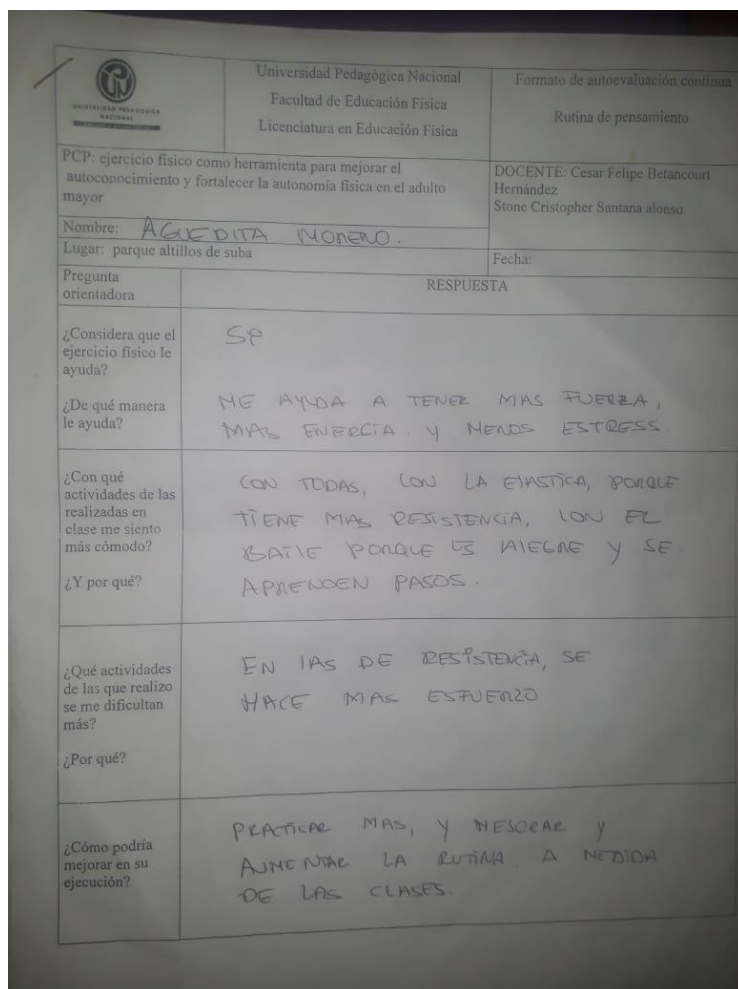 UNIVERSIDAD PEDAGOGICA
NACIONAL
Universidad Pedagógica Nacional
Facultad de Educación Física
Licenciatura en Educación Física
Formato de autoevaluación continua
Rutina de pensamiento
PCP: ejercicio físico como herramienta para mejorar el
autoconocimiento y fortalecer la autonomía física en el adulto
mayor
DOCENTE: Cesar Felipe Betancourt
Hernández
Stone Cristopher Santana alonso
Nombre: AGUEDITA MORENO.
Lugar: parque altillos de suba
Fecha:
Pregunta
orientadora
RESPUESTA
¿Considera que el
ejercicio físico le
ayuda?
¿De qué manera
le ayuda?
SI
ME AYUDA A TENER MAS FUERZA,
MAS ENERGÍA. Y MENOS ESTRESS.
¿Con qué
actividades de las
realizadas en
clase me siento
más cómodo?
¿Y por qué?
CON TODAS, CON LA ELASTICA, PORQUE
TIENE MAS RESISTENCIA, CON EL
BAILE PORQUE ES ALEGRE Y SE
APRENDEN PASOS.
¿Qué actividades
de las que realizo
se me dificultan
más?
¿Por qué?
EN LAS DE RESISTENCIA, SE
HACE MAS ESFUERZO
¿Cómo podría
mejorar en su
ejecución?
PRACTICAR MAS, Y MEJORAR Y
AUMENTAR LA RUTINA A MEDIDA
DE LAS CLASES.